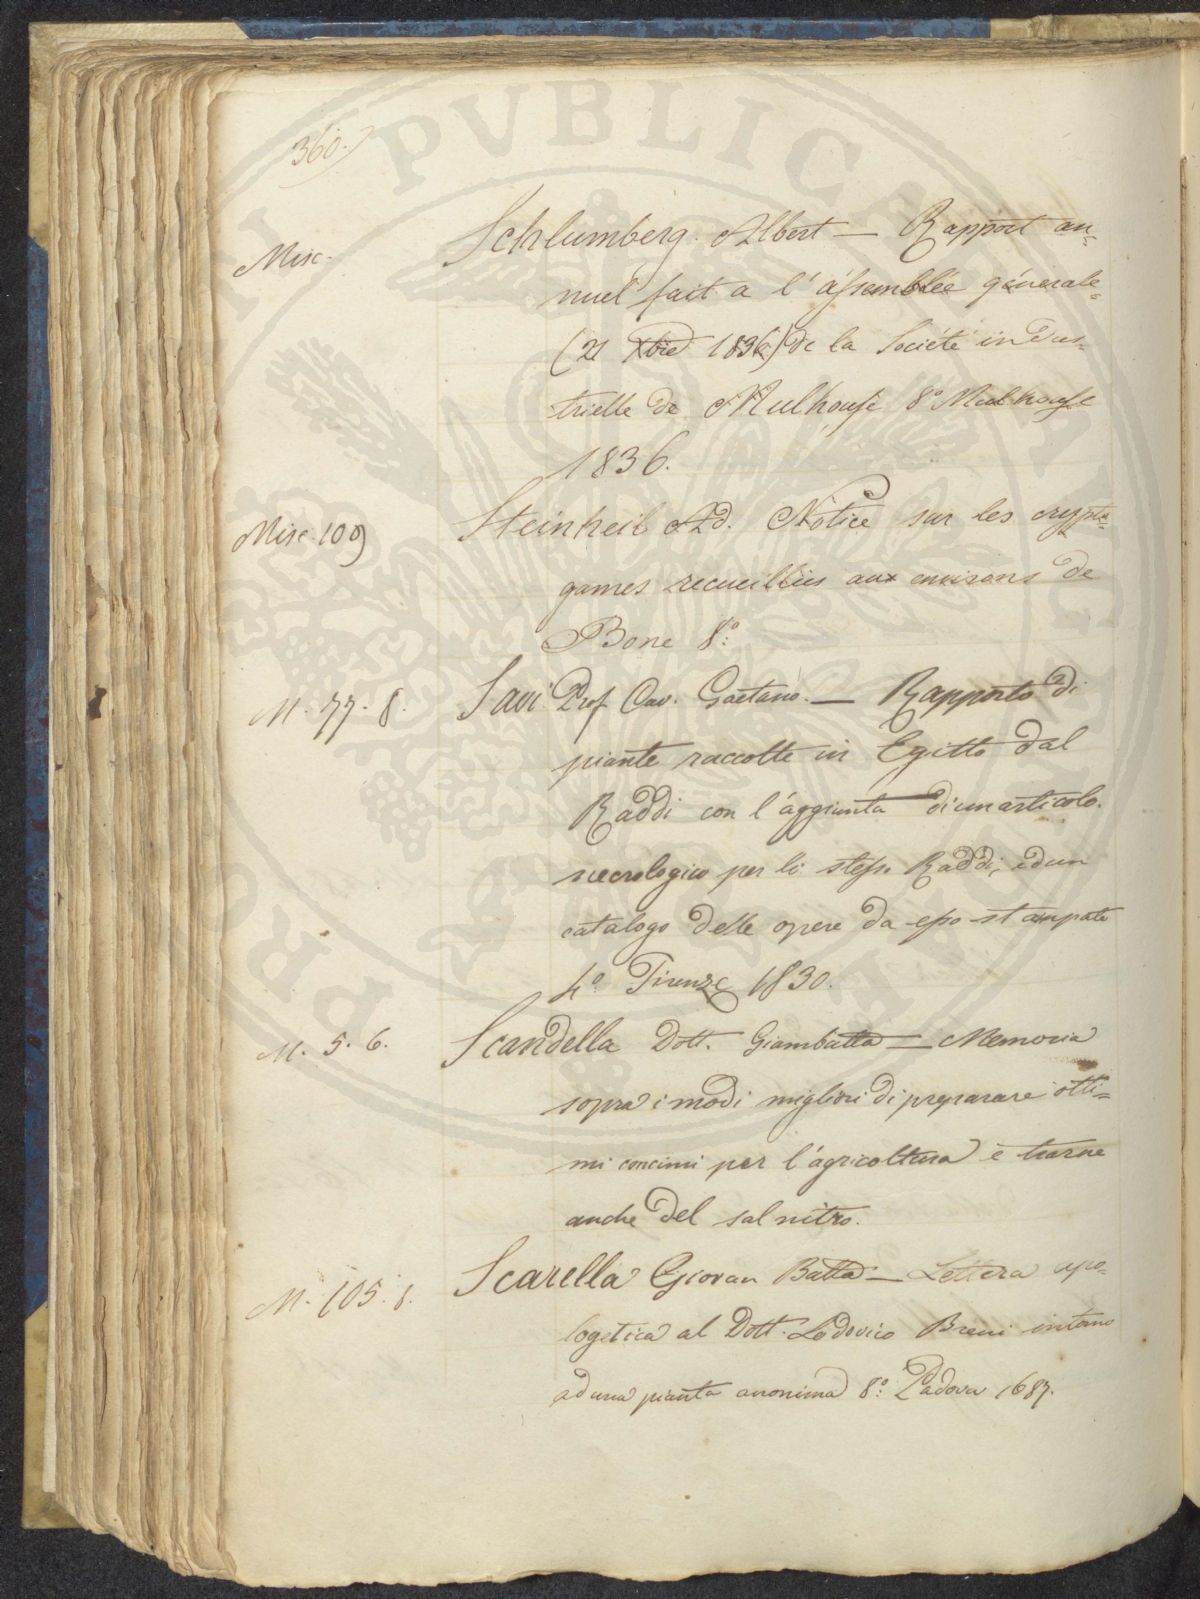 360.)
Misc.
Schlumberg. Albert — Rapport an=
nuel fait a l'assemblée générale=
(21 Xbre 1836) de la Société indus=
trielle de Mulhouse 8° Mulhouse
1836.
Misc. 109)
Steinheil Ad. Notice sur les crypto=
games recueillies aux environs de
Bone 8°:
M. 77. 8.
Savi Prof. Cav. Gaetano. — Rapporto di
piante raccolte in Egitto dal
Raddi con l'aggiunta di un articolo
necrologico per lo stesso Raddi, ed un
catalogo delle opere da esso stampate
4° Firenze 1830.
M. 5. 6.
Scandella Dott. Giambatta — Memoria
sopra i modi migliori di preparare otti=
mi concimi per l'agricoltura e trarne
anche del salnitro.
M. 105. 8.
Scarella Giovan Batta — Lettera apo=
logetica al Dott. Lodovico intorno
ad una pianta anonima 8°: Padova 1687.
PUBLICAE